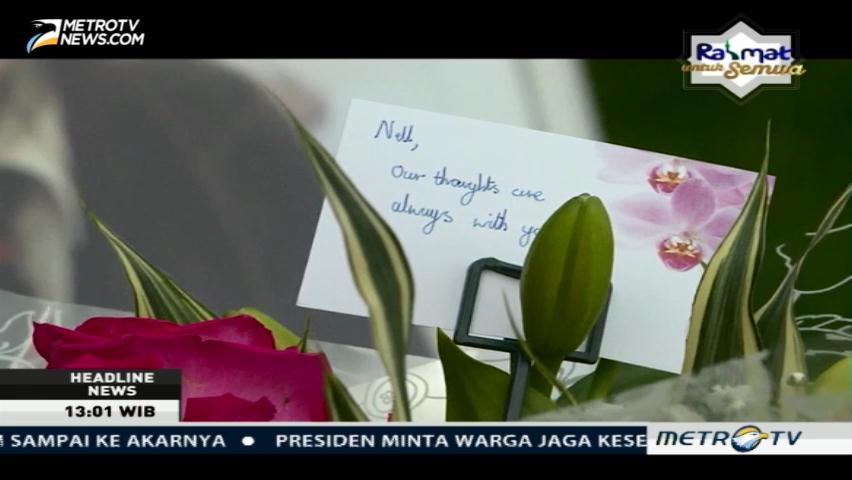 METROTV
NEWS.COM
Rahmat
untuk Semua
Nell,
Our thoughts are
always with
HEADLINE
NEWS
13:01 WIB
SAMPAI KE AKARNYA ● PRESIDEN MINTA WARGA JAGA KESE
METRO TV